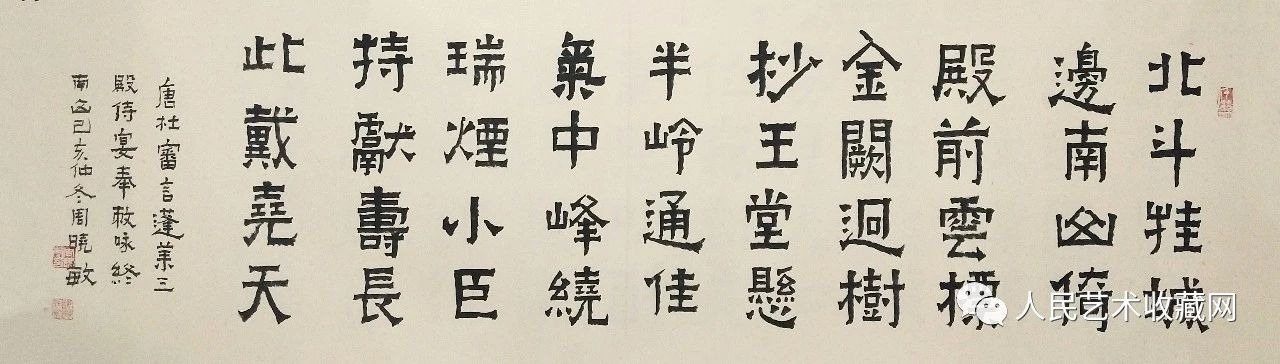 北斗挂城
邊南山倚
殿前雲標
金闕迥樹
抄王堂懸
半岭通佳
氣中峰繞
瑞煙小臣
持獻壽長
此戴堯天
唐杜審言蓬萊三
殿侍宴奉敕咏終
南山己亥仲冬周曉敏
人民艺术收藏网